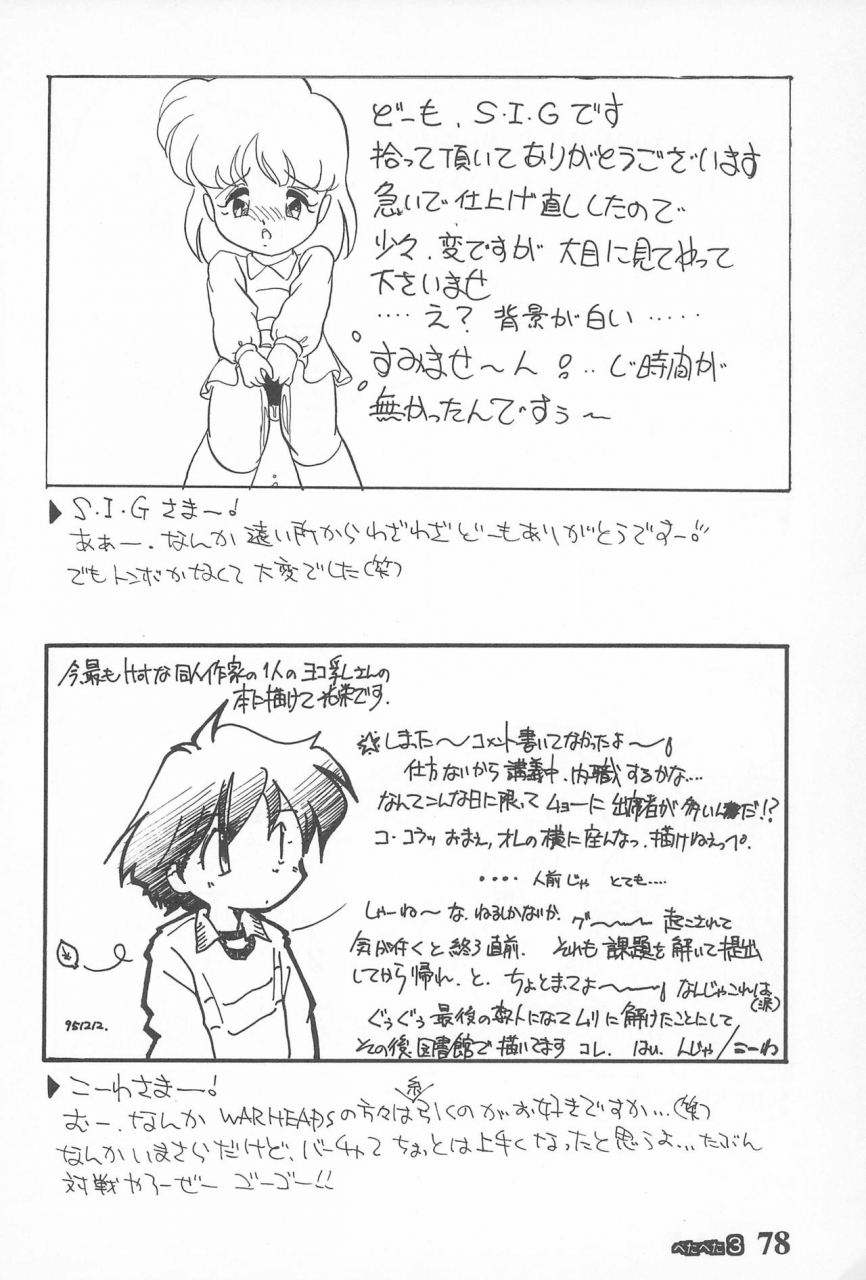 どーも、S・I・Gです
拾って頂いてありがとうございます
急いで仕上げ直ししたので
少々、変ですが 大目に見てやって
下さいませ
‥‥ え? 背景が白い ‥‥‥
すみませ〜ん!‥‥じ時間が
無かったんですぅ〜
▶ S・I・Gさま〜!
あぁー、なんか遠い所からわざわざどーもありがとうですー!!
でもトンボがなくて大変でした(笑)
今、最もHotな同人作家の1人のヨコ乳さんの
本に描けて光栄です.
しまった〜コメント書いてなかったよ〜!
仕方ないから講義中、内職するかな‥‥
なんてこんな日に限って ムョーに出席者が多いんだ!?
コ・コラッ おまえ,オレの横に座んなっ.描けねえっぺ.
‥‥ 人前じゃ とても‥‥
しゃーね〜な.ねるしかないか. グ〜〜 起こされて
気が付くと終了直前. それも課題を解いて提出
してから帰れ.と. ちょとまってよ〜〜! なんじゃこれは(涙)
ぐぅぐぅ 最後の数人になってムリに解けたことにして
その後、図書館で描いてます コレ. はい. んじゃ/こーわ
951212.
▶ こーわさまー!
むー.なんか WARHEADSの方々は糸引くのがお好きですか...(笑)
なんかいまさらだけど、バーチャって ちょっとは上手くなったと思うよ...たぶん
対戦やろーぜー ゴーゴー!!
ぺたぺた3 78